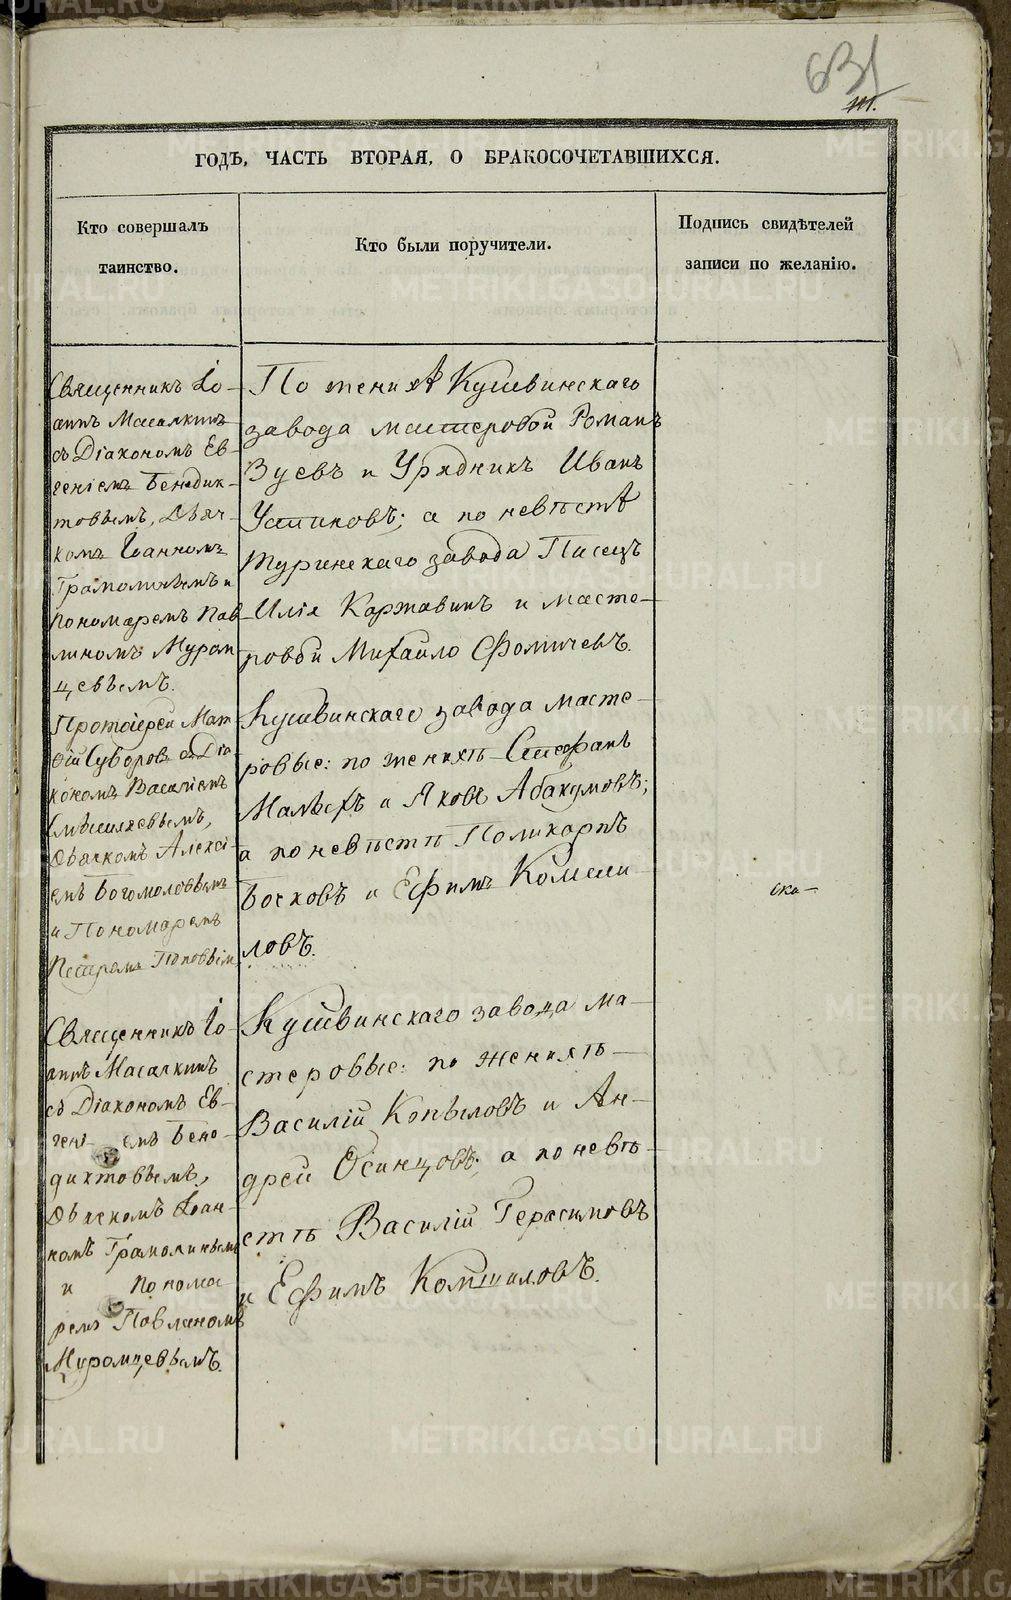 631
ГОДЪ, ЧАСТЬ ВТОРАЯ, О БРАКОСОЧЕТАВШИХСЯ.
Кто совершалъ
таинство.
Кто были поручители.
Подпись свидѣтелей
записи по желанію.
Священникъ Іо-
аннъ Масалкинъ
съ Діакономъ Ев-
геніемъ Бенедик-
товымъ, Дьяч-
комъ Іоанномъ
Грамолинымъ и
пономаремъ Пав-
линомъ Муром-
цевымъ.
По женихѣ Кушвинскаго
завода мастеровой Романъ
Зуевъ и Урядникъ Иванъ
Устиновъ; а по невѣстѣ
Туринскаго завода Писецъ
Илія Каржавинъ и масте-
ровой Михайло Фомичевъ.
Протоіерей Мат-
ѳій Суворовъ съ Діа-
кономъ Василіемъ
Дьячкомъ Алексі-
емъ Богомоловымъ
и Пономаремъ
Петромъ Поповым
Кушвинскаго завода масте-
ровые: по женихѣ Стефанъ
и Яковъ Абакумовъ;
а по невѣстѣ Поликарпъ
Босковъ и Ефимъ Комели-
ловъ.
ска-
Священникъ Іо-
аннъ Масалкинъ
съ Діакономъ Ев-
гені емъ Бене-
диктовымъ,
Дьячкомъ Іоан-
номъ Грамолинымъ
и понома
ремъ Павлиномъ
Муромцевымъ.
Кушвинскаго завода ма-
стеровые: по женихѣ
Василій Копыловъ и Ан-
дрей Осинцовъ; а по невѣ-
стѣ Василій Герасимовъ
и Ефимъ Комшиловъ.
METRIKI.GASO-URAL.RU